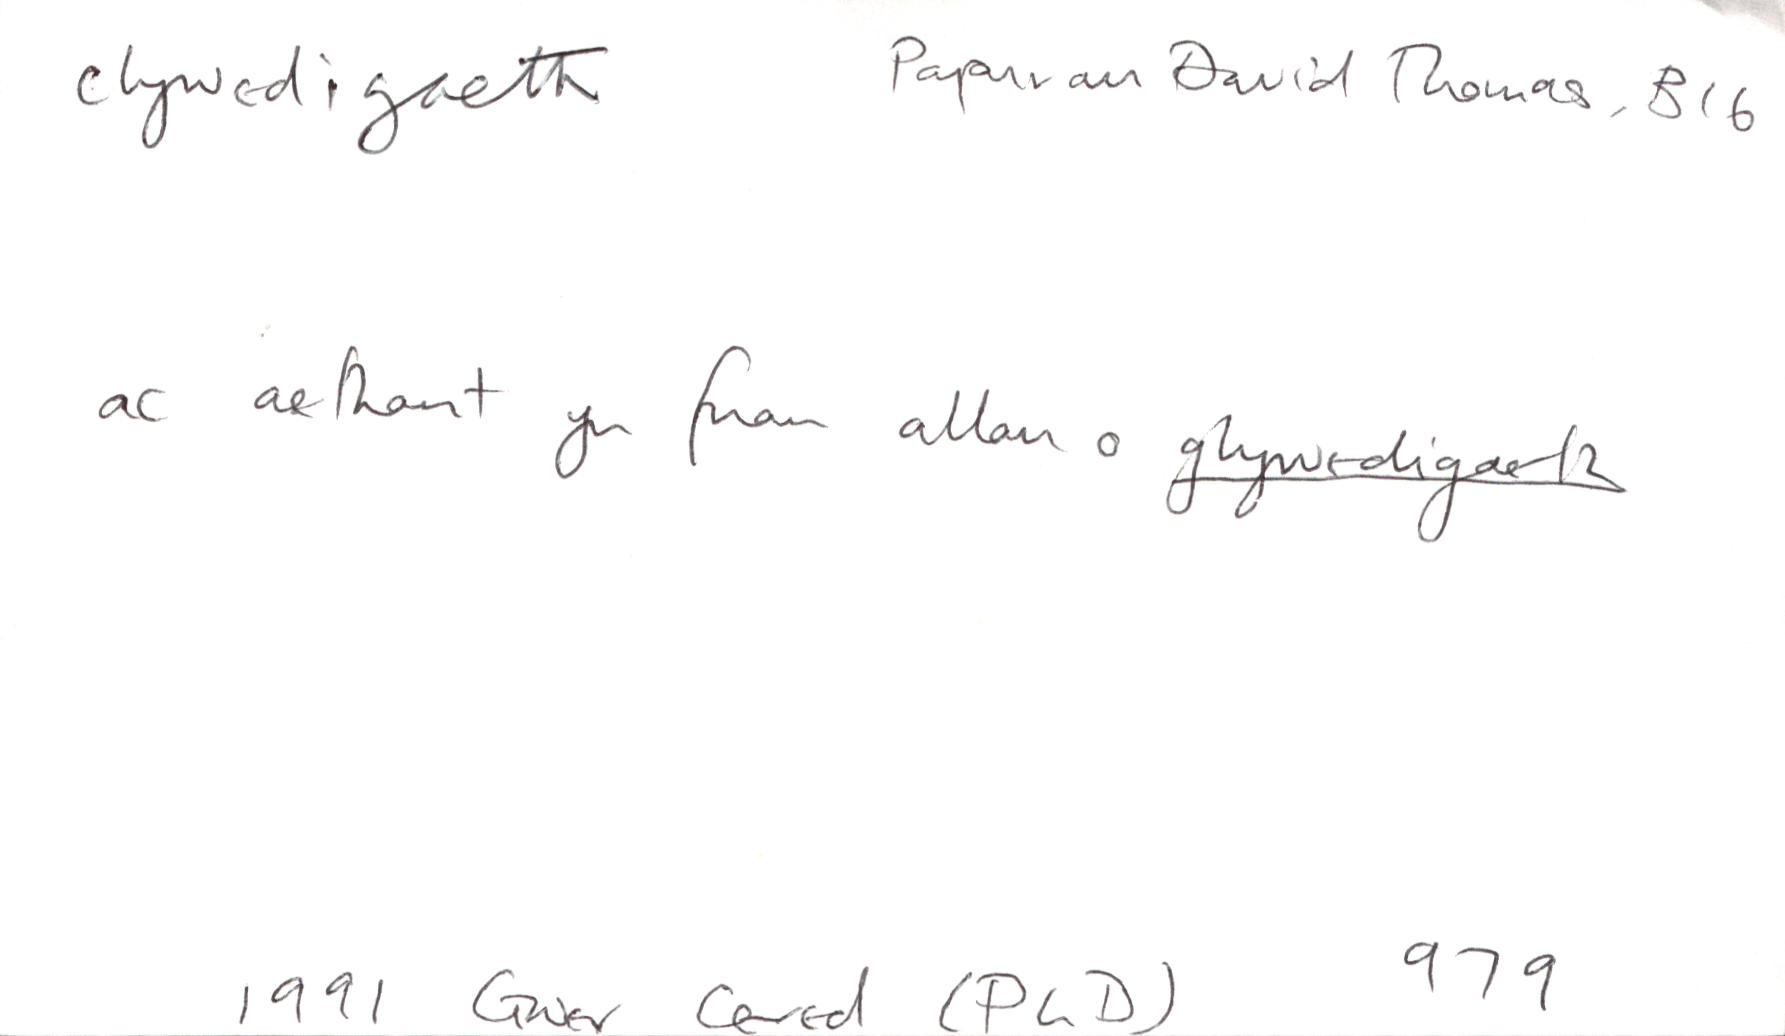 clywedigaeth Papurau David Thomas, B16
ac aethant yn fuan allan o glywedigaeth
1991 Gwer Cered (PhD) 979